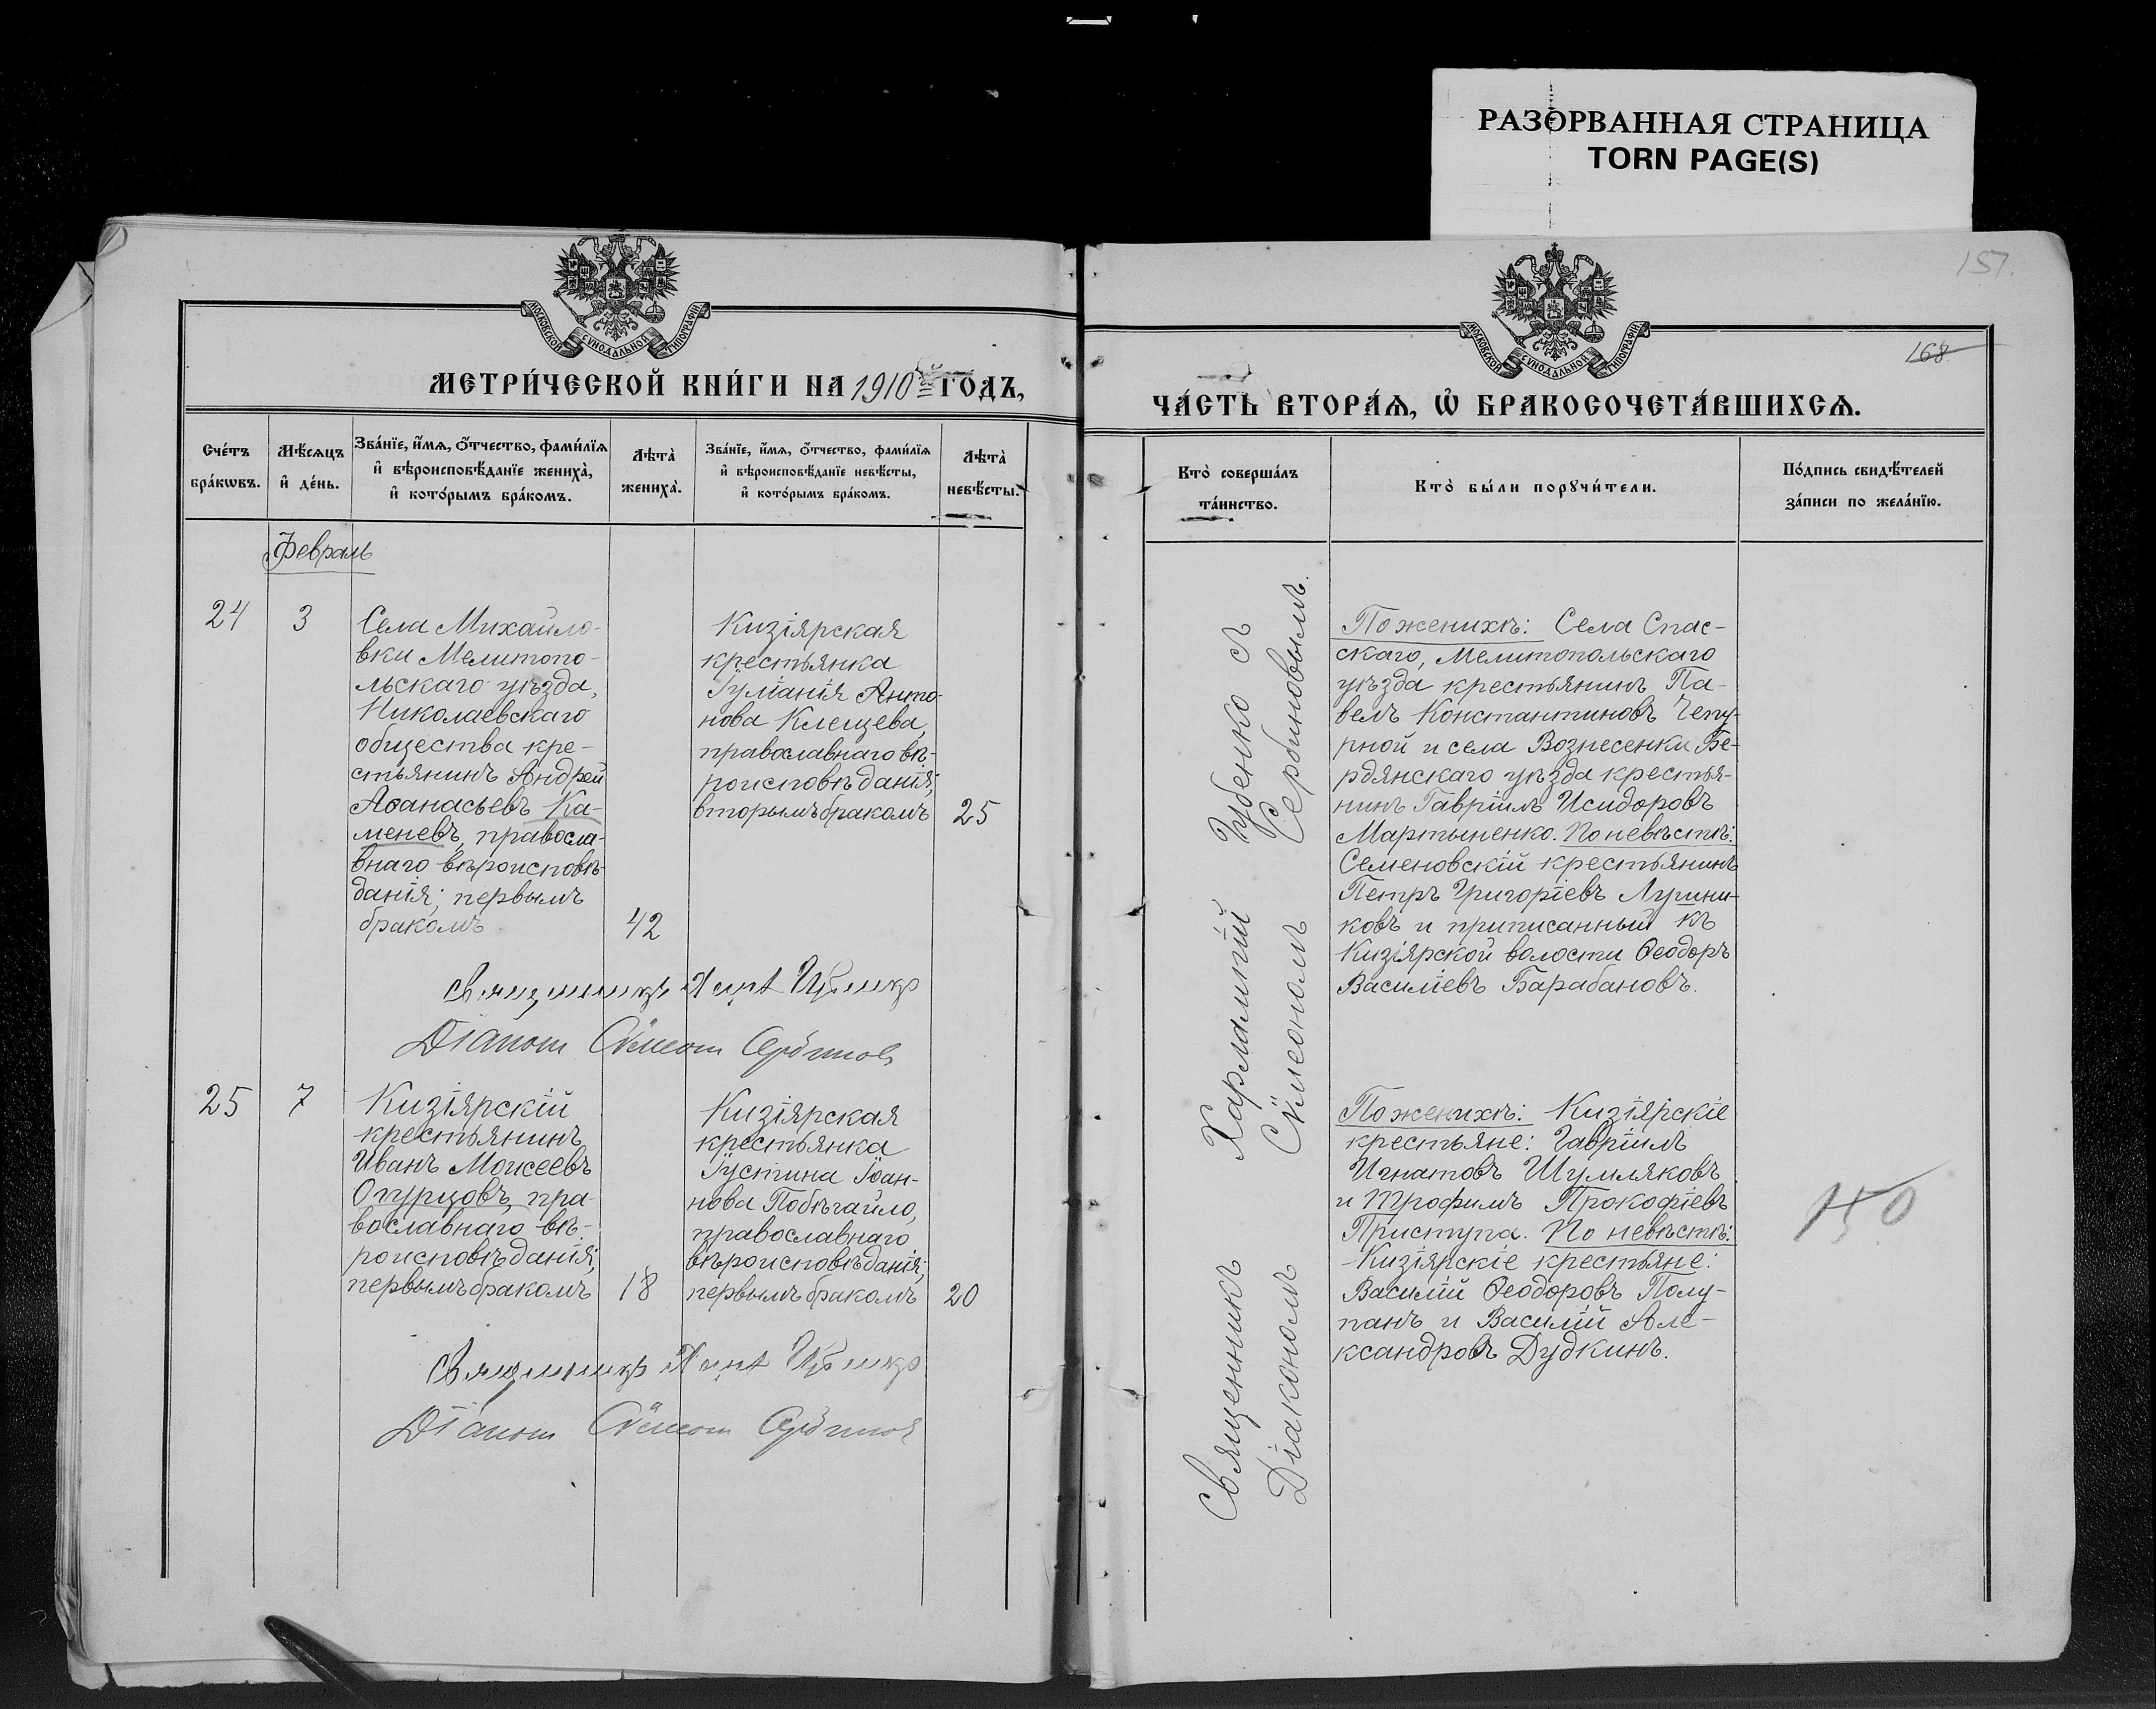 РАЗОРВАННАЯ СТРАНИЦА
TORN PAGE(S)
МОСКОВСКОЙ СѴНОДАЛЬНОЙ ТИПОГРАФІИ
МЕТРИ́ЧЕСКОЙ КНИ́ГИ НА 1910 ГОДЪ,
Сче́тъ бра́кѡвъ.
Мѣ́сяцъ и҆ де́нь.
Зва́нїе, и҆́мѧ, ѻ҆́тчество, фами́лїѧ
и҆ вѣроисповѣ́данїе жениха̀,
и҆ кото́рымъ бра́комъ.
Лѣта̀ жениха̀.
Зва́нїе, и҆́мѧ, ѻ҆́тчество, фами́лїѧ
и҆ вѣроисповѣ́данїе невѣ́сты,
и҆ кото́рымъ бра́комъ.
Лѣта̀ невѣ́сты.
Февраль
24
3
Села Михайло-
вки Мелитопо-
льскаго уѣзда,
Николаевскаго
общества кре-
стьянинъ Андрей
Аѳанасьевъ Ка-
меневъ, правосла-
внаго вѣроисповѣ-
данія; первымъ
бракомъ
42
Кизіярская
крестьянка
Іуліанія Анто-
нова Клещева,
православнаго вѣ-
роисповѣданія;
вторымъ бракомъ
25
Священникъ
Діаконъ
25
7
Кизіярскій
крестьянинъ
Иванъ Моисеевъ
Огурцовъ, пра-
вославнаго вѣ-
роисповѣданія;
первымъ бракомъ
18
Кизіярская
крестьянка
Іустина Іоан-
нова Побѣгайло,
православнаго
вѣроисповѣданія;
первымъ бракомъ
20
Священникъ
Діаконъ
157.
168
МОСКОВСКОЙ СѴНОДАЛЬНОЙ ТИПОГРАФІИ
ЧА́СТЬ ВТОРА́Ѧ, Ѡ҆ БРАКОСОЧЕТА́ВШИХСѦ.
Кто̀ соверша́лъ
та́инство.
Кто̀ бы́ли порꙋчи́тели.
По́дпись свидѣ́телей
за́писи по жела́нїю.
Священникъ Харлампій Чубенко съ
Діакономъ Сѵмеономъ Сербиновымъ.
По женихѣ: Села Спас-
скаго, Мелитопольскаго
уѣзда крестьянинъ Па-
велъ Константиновъ Чепу-
рной и села Вознесенки Бе-
рдянскаго уѣзда крестья-
нинъ Гавріилъ Исидоровъ
Мартыненко. По невѣстѣ:
Семеновскій крестьянинъ
Петръ Григоріевъ
и приписанный къ
Кизіярской волости Ѳеодоръ
Василіевъ Барабановъ.
По женихѣ: Кизіярскіе
крестьяне: Гавріилъ
Игнатовъ Шумляковъ
и Трофимъ Прокофіевъ
Приступа. По невѣстѣ:
Кизіярскіе крестьяне:
Василій Ѳеодоровъ Полу-
панъ и Василій Але-
ксандровъ Дудкинъ.
150